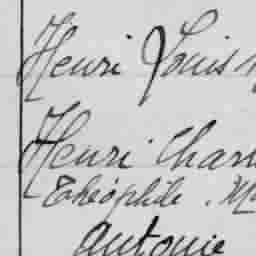 Henri Louis
Henri Charl
Théophile. Ma
Antonie